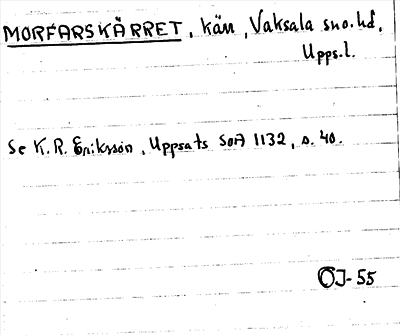 MORFARSKÄRRET, kän, Vaksala sno.hd,
Upps.l.
Se K.R. Eriksson, Uppsats SOA 1132, s. 40.
ÖJ-55